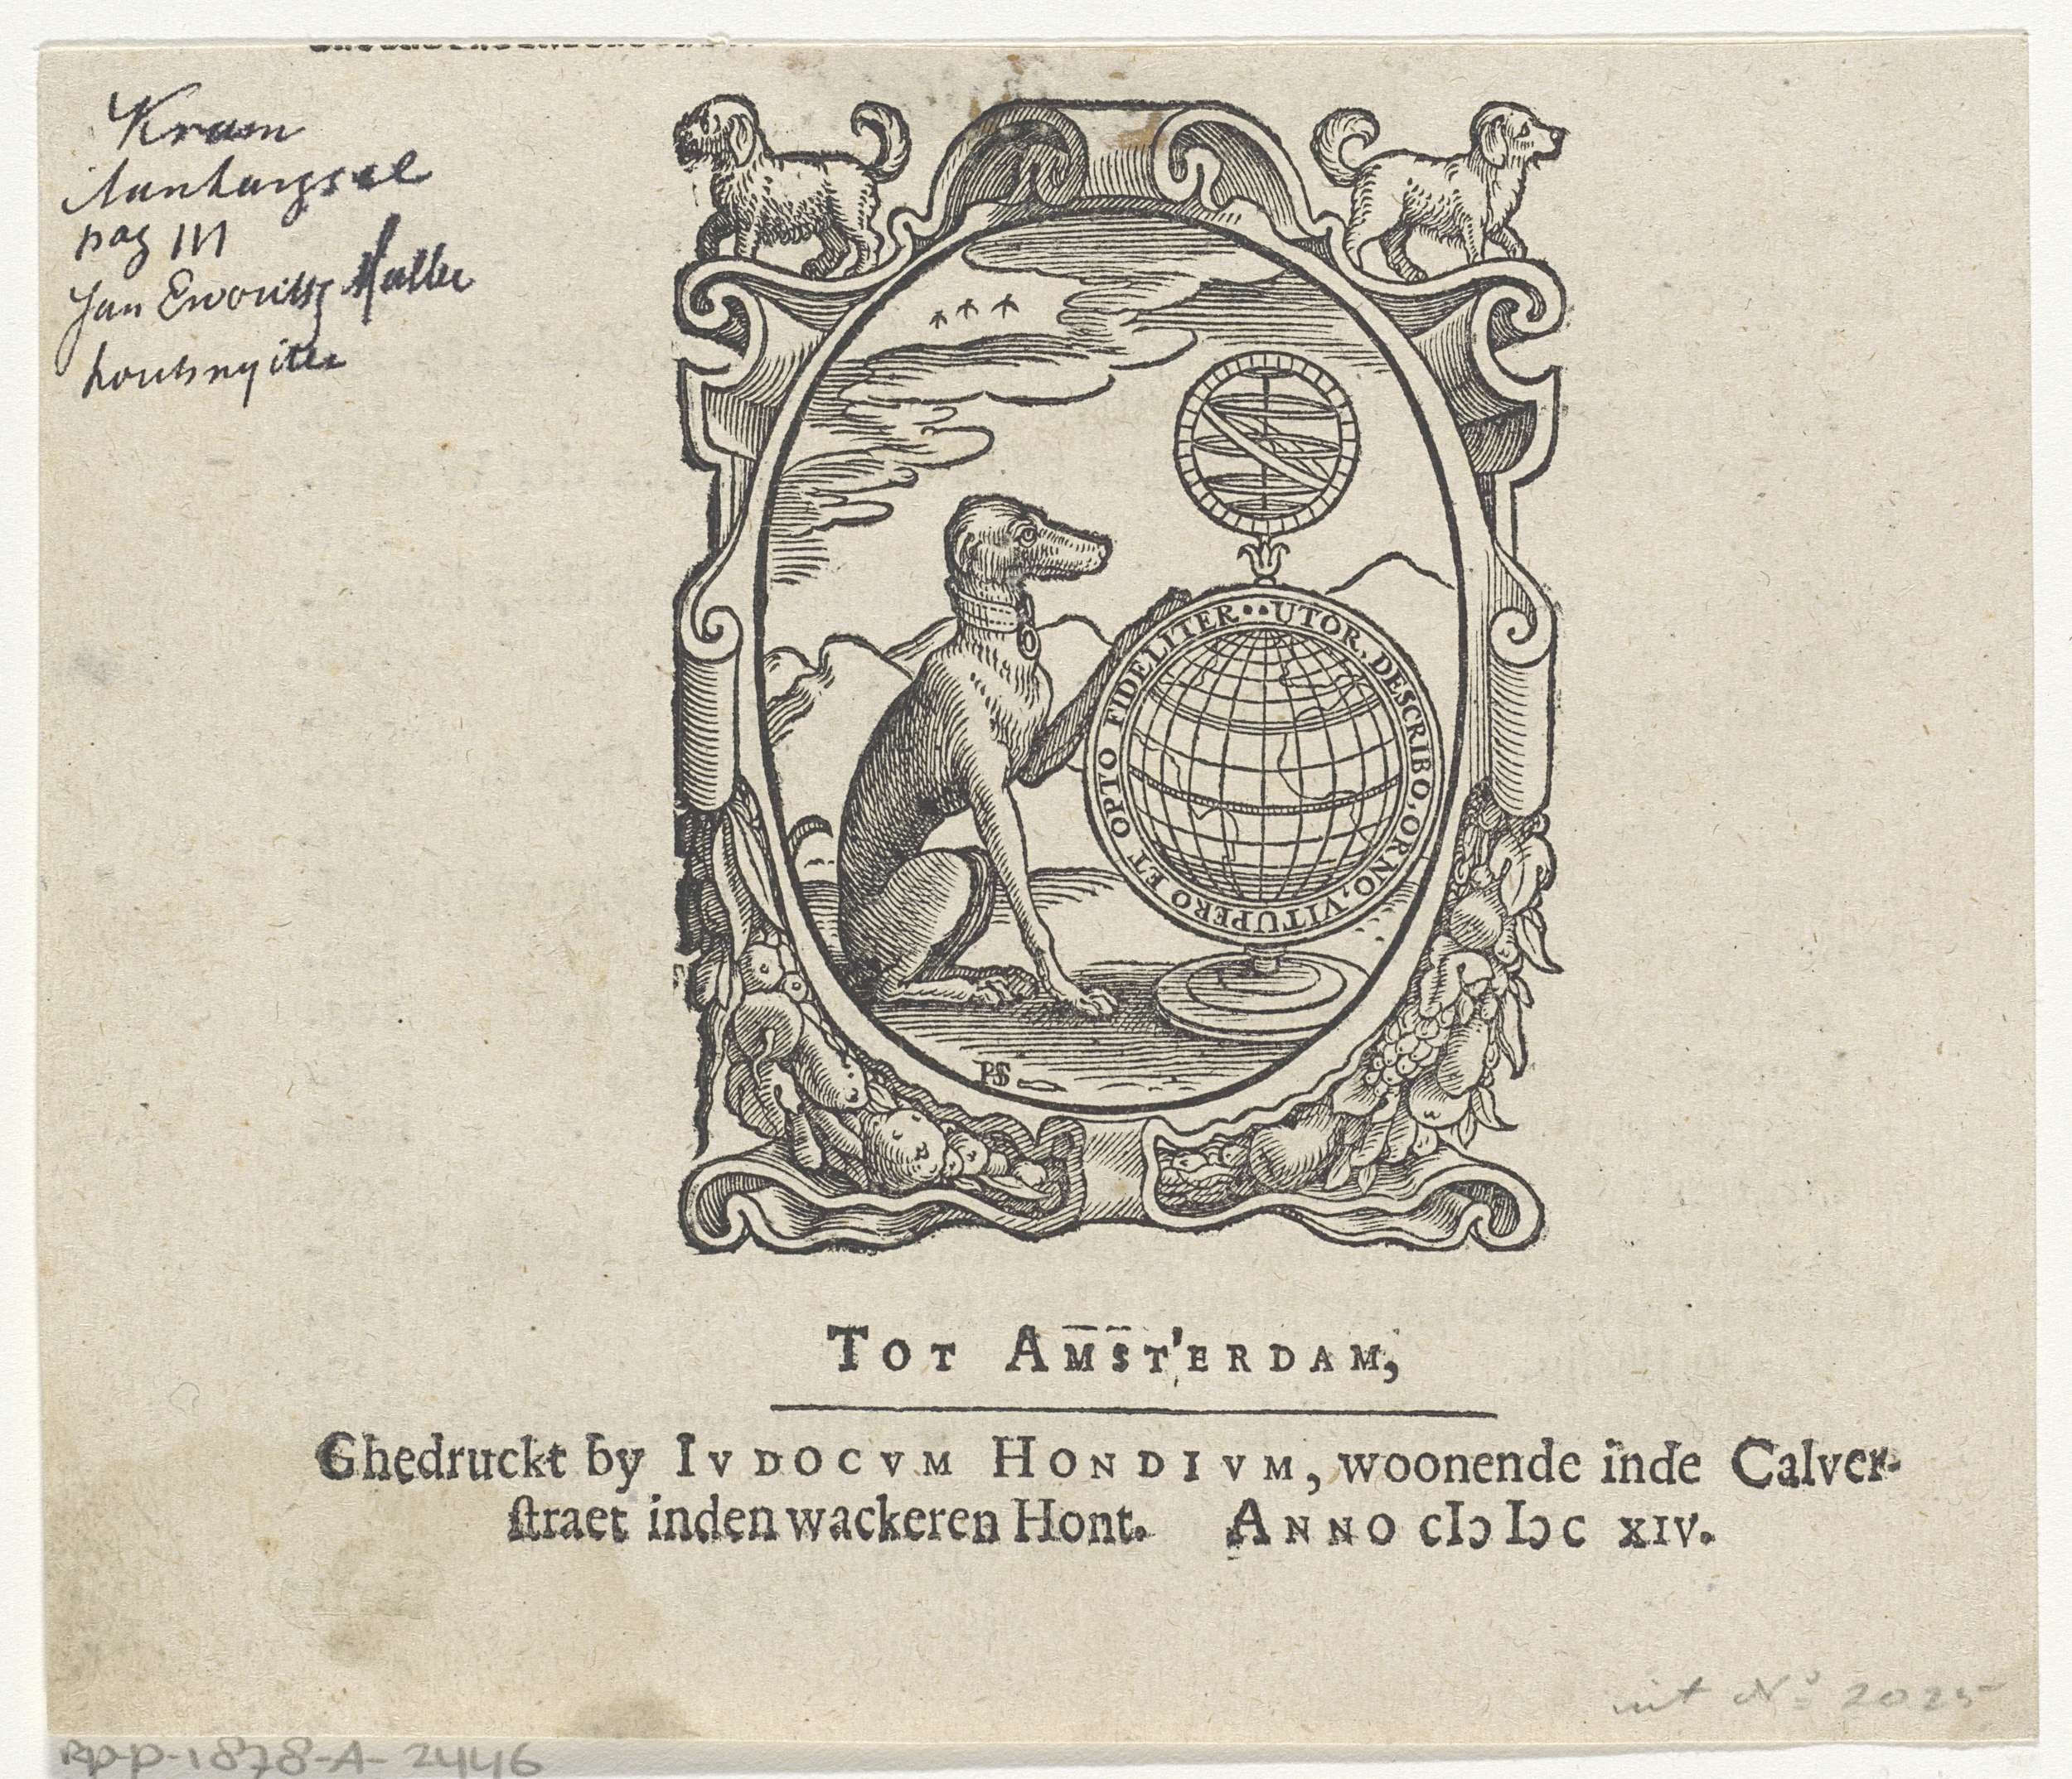 Kram
Aanhangsel
pag 111
Jan Ewoutsz Muller
houtsnyder
UTOR, DESCRIBO, ORNO, VITUPERO ET OPTO FIDELITER··
TOT AM̅S̅T'ERDAM,
Ghedruckt by IVDOCVM HONDIVM, woonende inde Calver-
ſtraet inden wackeren Hont. ANNO cIↄ Iↄc XIV.
uit No 2025
RP-P-1878-A-2446